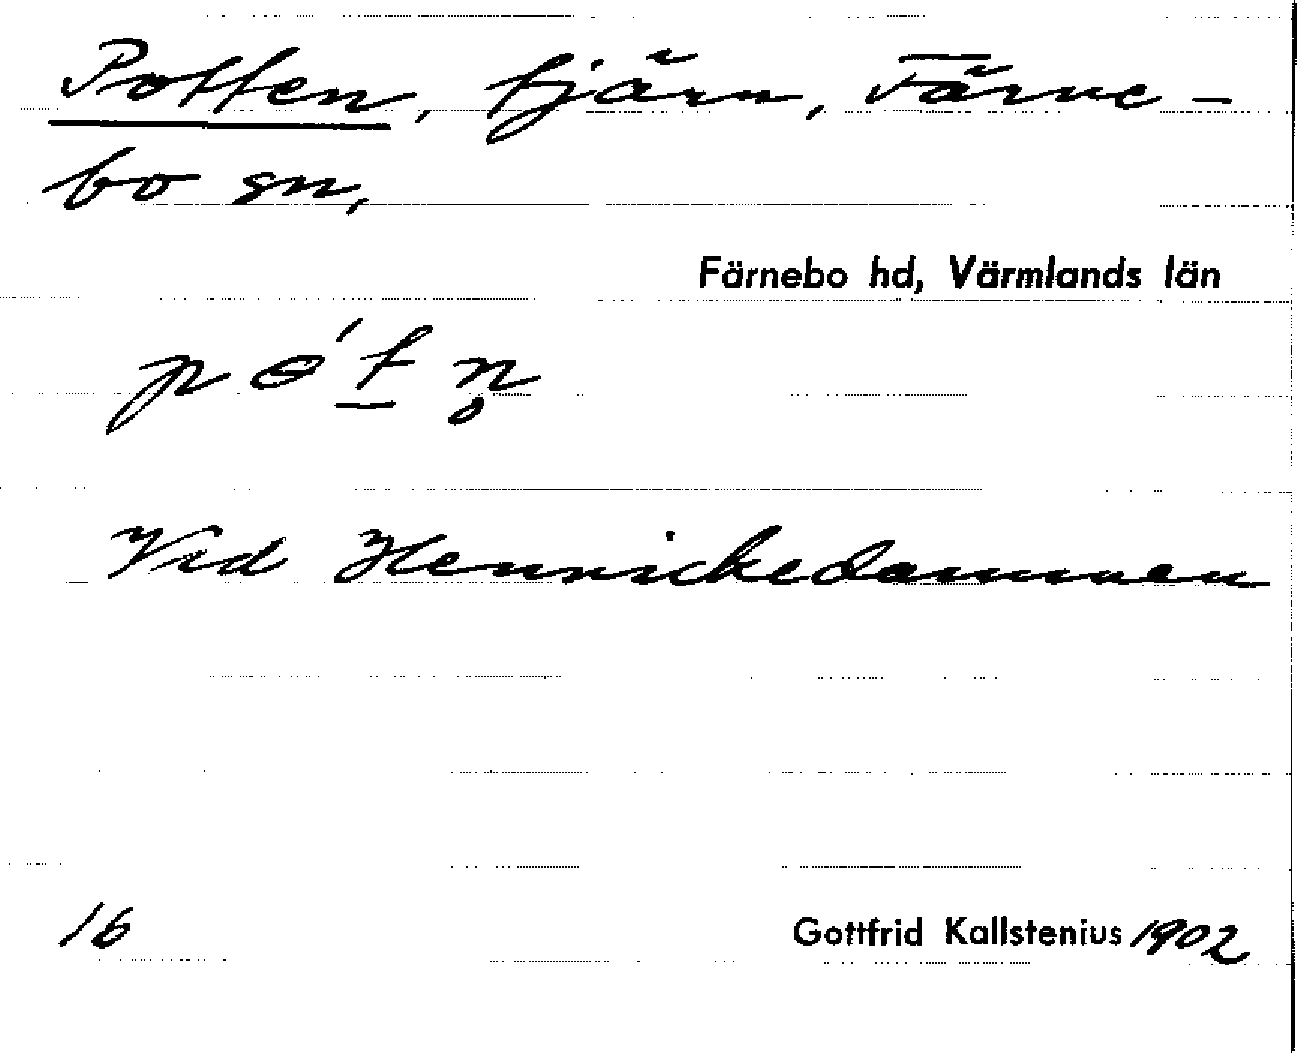 Potten, tjärn, Färne-
bo sn,
Färnebo hd, Värmlands län
pɵ́t̲n̥
Vid Hennickedammen
16
Gottfrid Kallstenius 1902